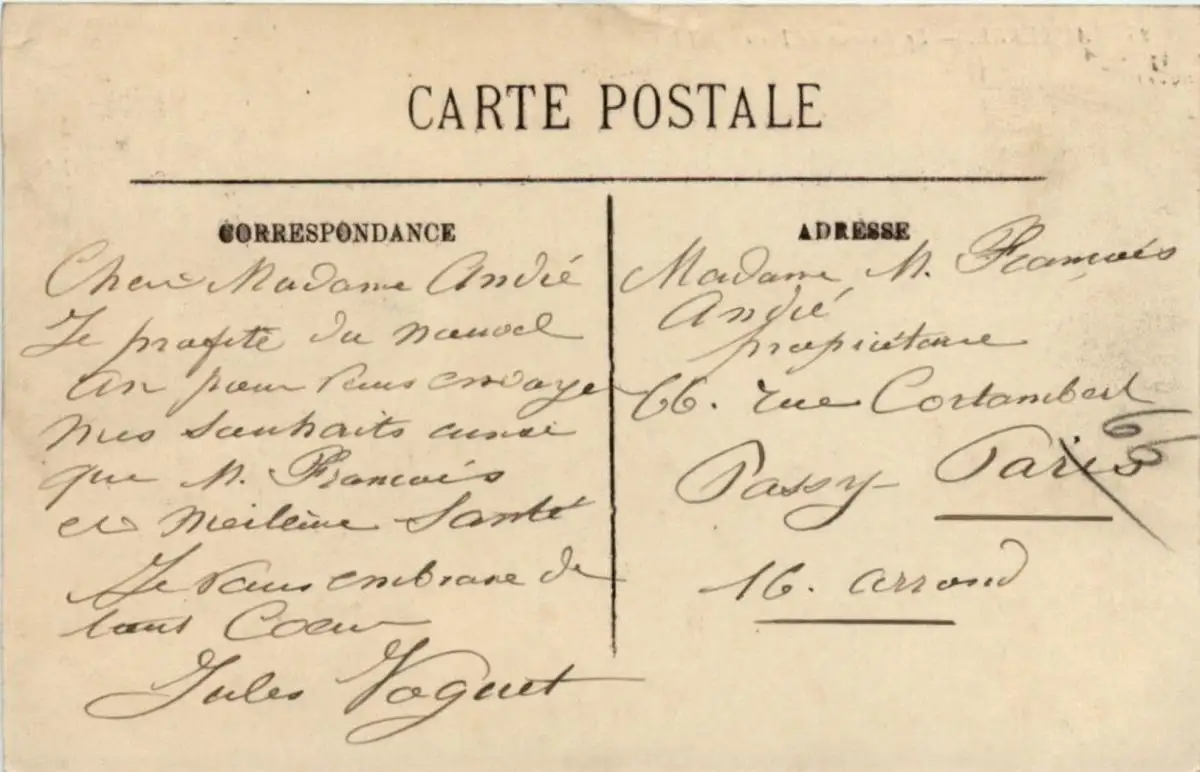 CARTE POSTALE
CORRESPONDANCE
Cher Madame André
Je profite du nouvel
an pour vous envoyer
mes souhaits ainsi
que M. François
et meilleure Santé
Je vous embrasse de
tout Coeur
Jules Voguet
ADRESSE
Madame M. François
André
propriétaire
66. rue Cortambert
66
Passy - Paris
16. arrond